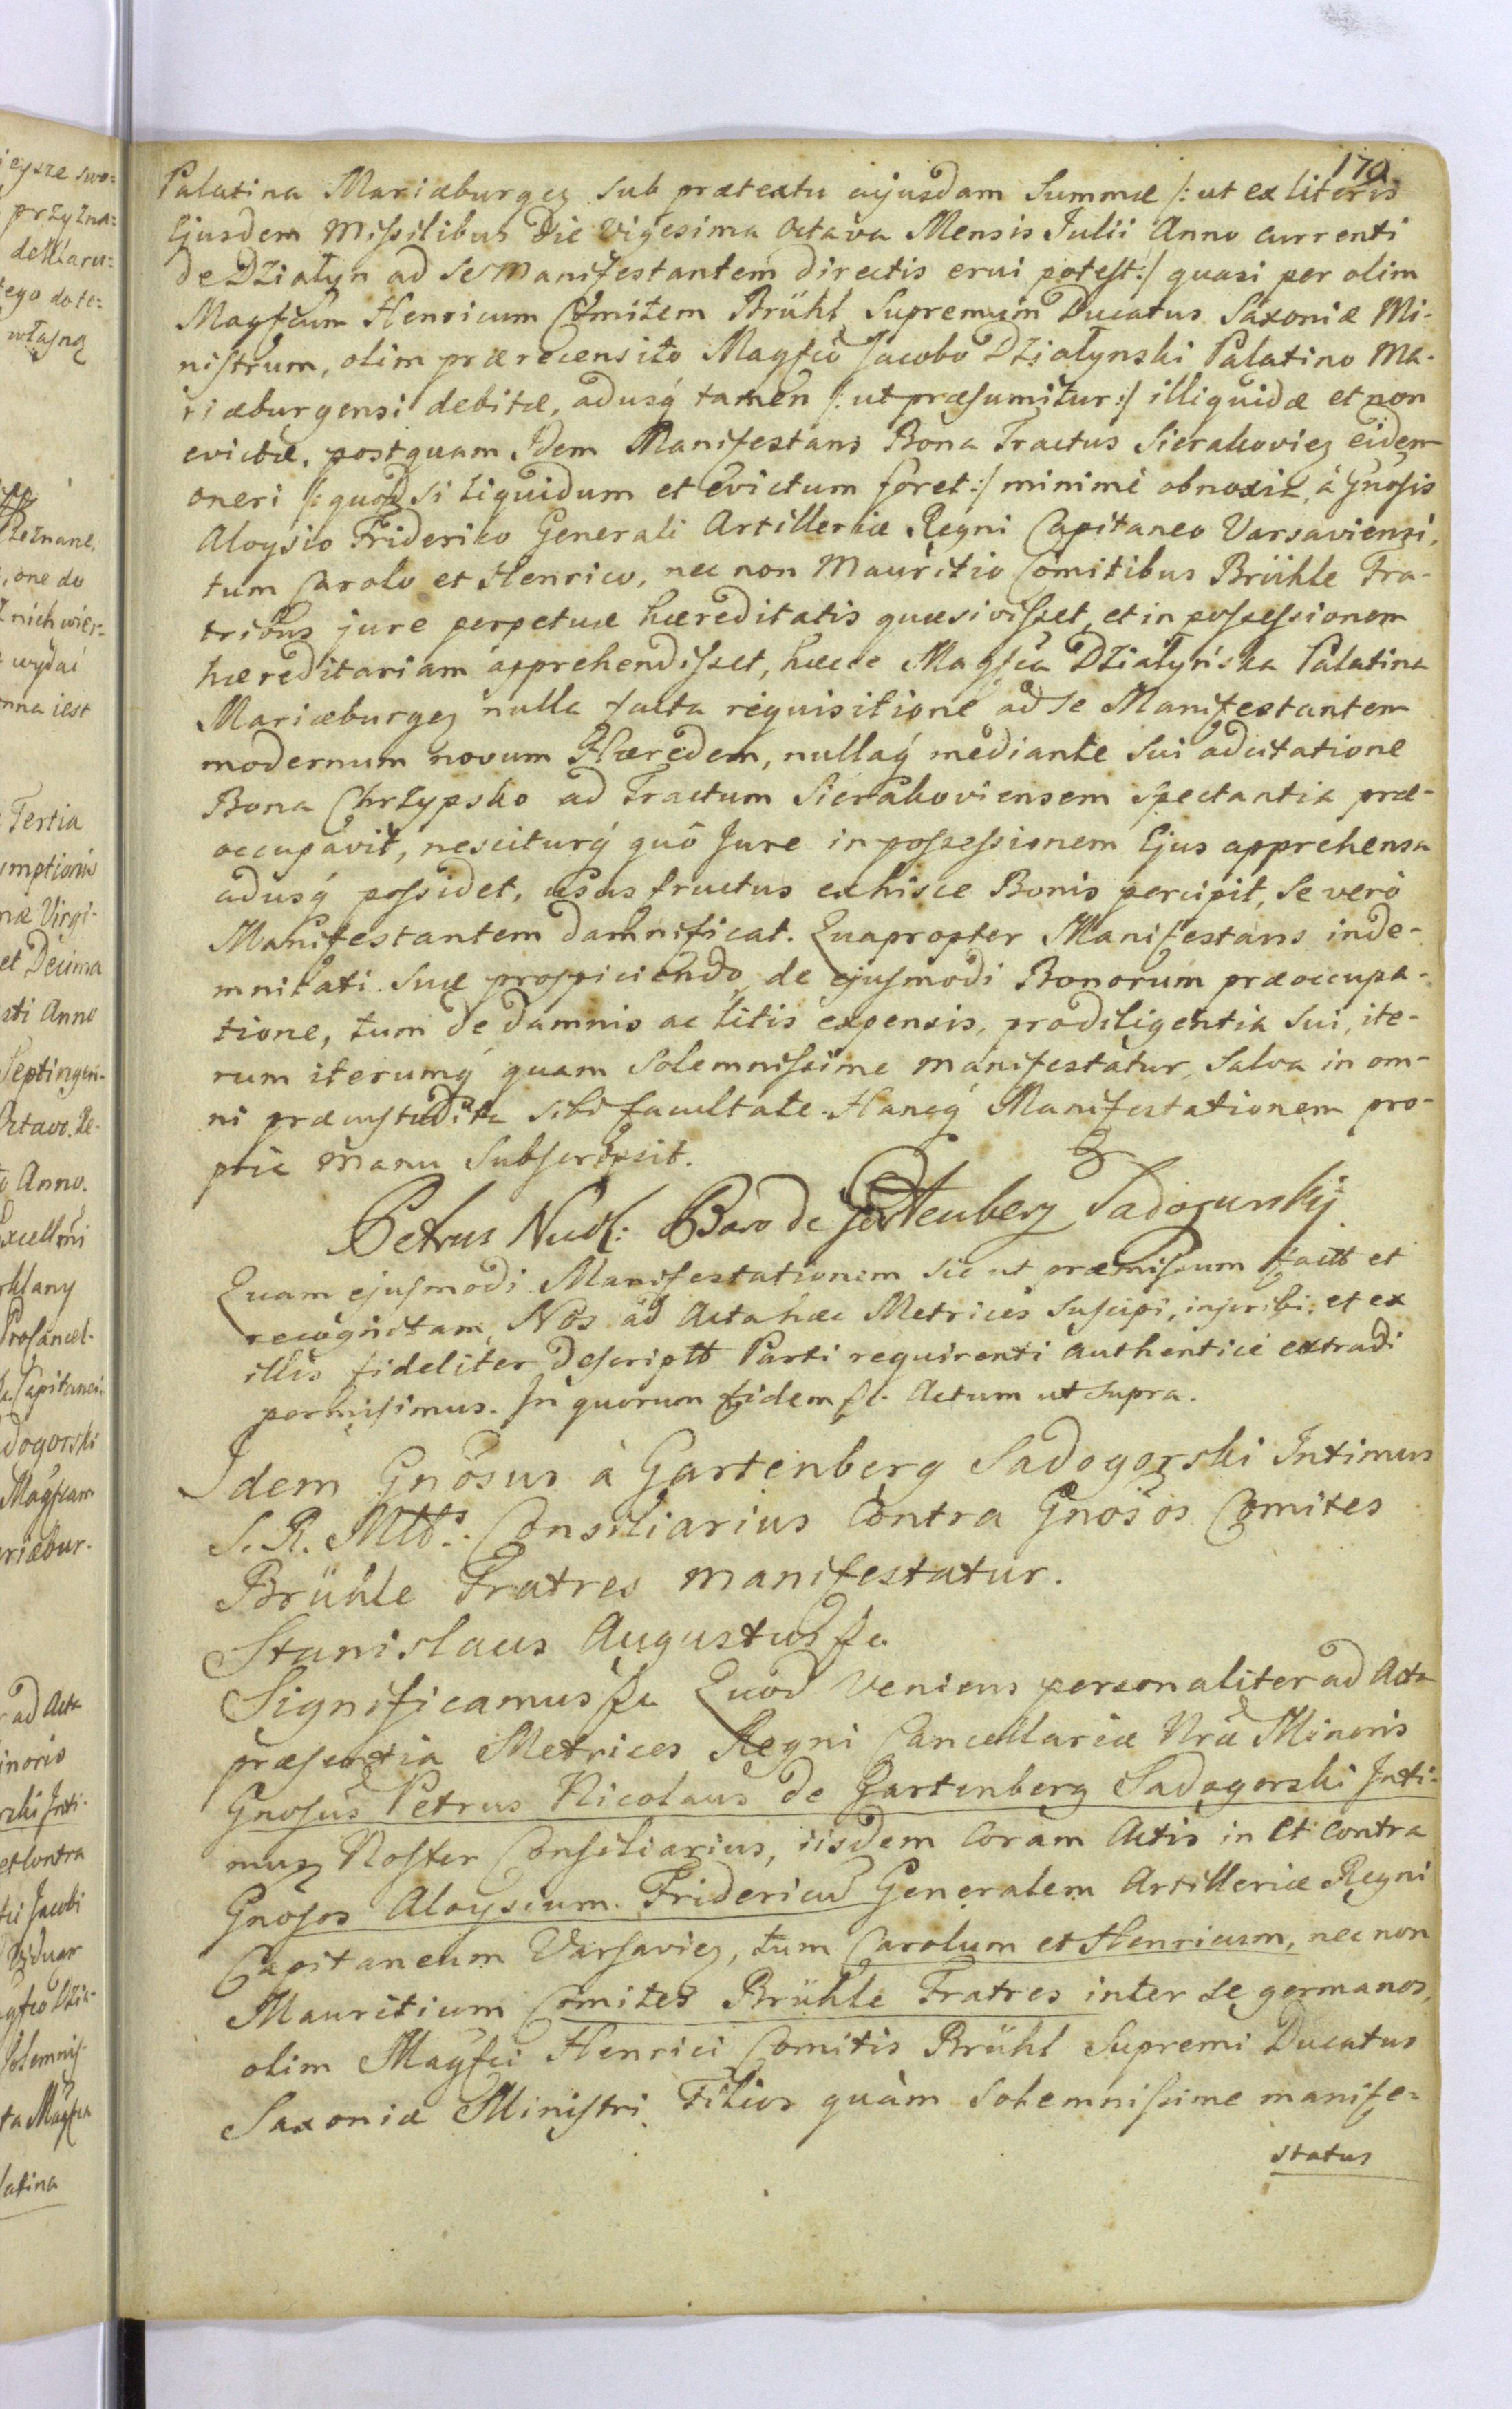 170
Palatina Mariæburgez sub prætextu cujusdam Summæ /: ut ex literis
Ejusdem Missilibus die vigesima octava Mensis Julii Anno currenti
de Działyn ad se Manifestantem directis erui potest :/ quasi per olim
Magfcum Henricum Comitem Brühl Supremum Ducatus Saxoniæ Mi-
nistrum, olim prærecensito Magfco Jacobo Działynski Palatino Ma-
riæburgensi debitæ, adusq tamen /: ut præsumitur :/ illiquidæ et non
evictæ, postquam Idem Manifestans Bona Tractus Sierakoviez eidem
oneri /: quod si liquidum et evictum foret :/ minimè obnoxia, à Gnosis
Aloysio Friderico Generali Artilleriæ Regni Capitaneo Varsaviensi,
tum Carolo et Henrico, nec non Mauritio Comitibus Brühle Fra-
tribus jure perpetuæ hæreditatis quæsivisset, et in possessionem
hæreditariam apprehendisset, hæcce Magfca Działyńska Palatina
Mariæburgez nulla facta requisitione ad se Manifestantem
modernum novum Hæredem, nullaq mediante sui adcitatione
Bona Chrzypsko ad Tractum Sierakoviensem spectantia præ-
occupavit, nesciturq quô Jure in possessionem Ejus apprehensa
adusq possidet, usus fructus ex hisce Bonis percipit, se verò
Manifestantem damnificat. Quapropter Manifestans inde-
mnitati suæ prospiciendo, de ejusmodi Bonorum præoccupa-
tione, tum de damnis ac litis expensis, pro diligentia sui, ite-
rum iterumq quam solemnissime manifestatur, salva in om-
ni præcustodita sibi facultate. Hancq Manifestationem pro-
pria manu subscripsit.
Petrus Nicol: Baro de Gartenberg Sadogurskij
Quam ejusmodi Manifestationem sic ut præmissum factt et
recognitam, Nos ad Acta hæc Metrices suscipi, inscribi, et ex
illis fideliter descriptt Parti requirenti authentice extradi
permisimus. In quorum fidem &. Actum ut supra.
Idem Gnosus à Gartenberg Sadogorski Intimus
S. R. Mtts. Consiliarius Contra Gnosos Comites
Brühle Fratres manifestatur.
Stanislaus Augustus &c
Significamus &c Quod veniens personaliter ad Acta
præsentia Metrices Regni Cancellariæ Nræ Minoris
Gnosus Petrus Nicolaus de Gartenberg Sadogorski Inti-
mus Noster Consiliarius, iisdem coram Actis in et contra
Gnosos Aloysium Fridericum Generalem Artilleriæ Regni
Capitaneum Varsaviez, tum Carolum et Henricum, nec non
Mauritium Comites Brühle Fratres inter se germanos,
olim Magfci Henrici Comitis Brühl Supremi Ducatus
Saxoniæ Ministri Filios quàm solemnissime manife-
status